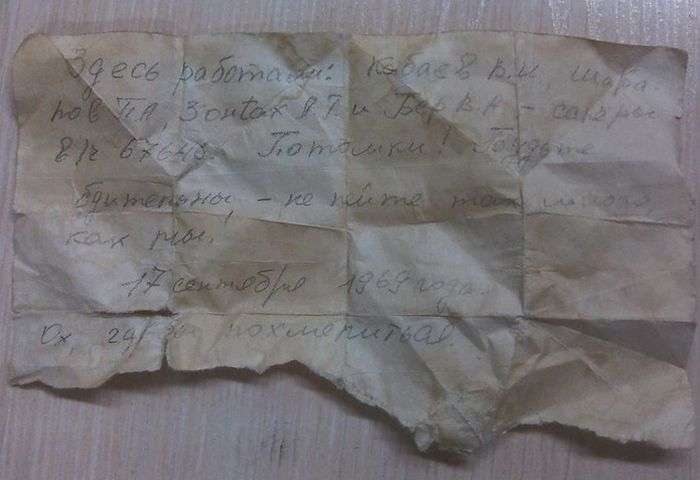 Здесь работали: К В.И, Шара
пов П А, Зонтах В.П и Бер В.А. - сапёры
в/ч 67640. Потомки! Будьте
бдительны - не пейте так много,
как мы!
17 сентября 1969 года.
Ох, бы похмелиться!